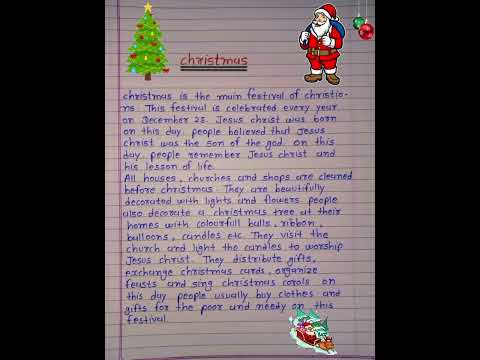 christmas
christmas is the main festival of christia-
ns. This festival is celebrated every year
on December 25. Jesus christ was born
on this day. people believed that Jesus
christ was the son of the god. on this
day people remember Jesus christ and
his lesson of life.
All houses, churches and shops are cleaned
before christmas. They are beautifully
decorated with lights and flowers. people
also decorate a christmas tree at their
homes with colourfull balls, ribbon,
balloons, candles etc. They visit the
church and light the candles to worship
Jesus christ. They distribute gifts,
exchange christmas cards, organize
feasts and sing christmas corols on
this day people usually buy clothes and
gifts for the poor and needy on this
festival.